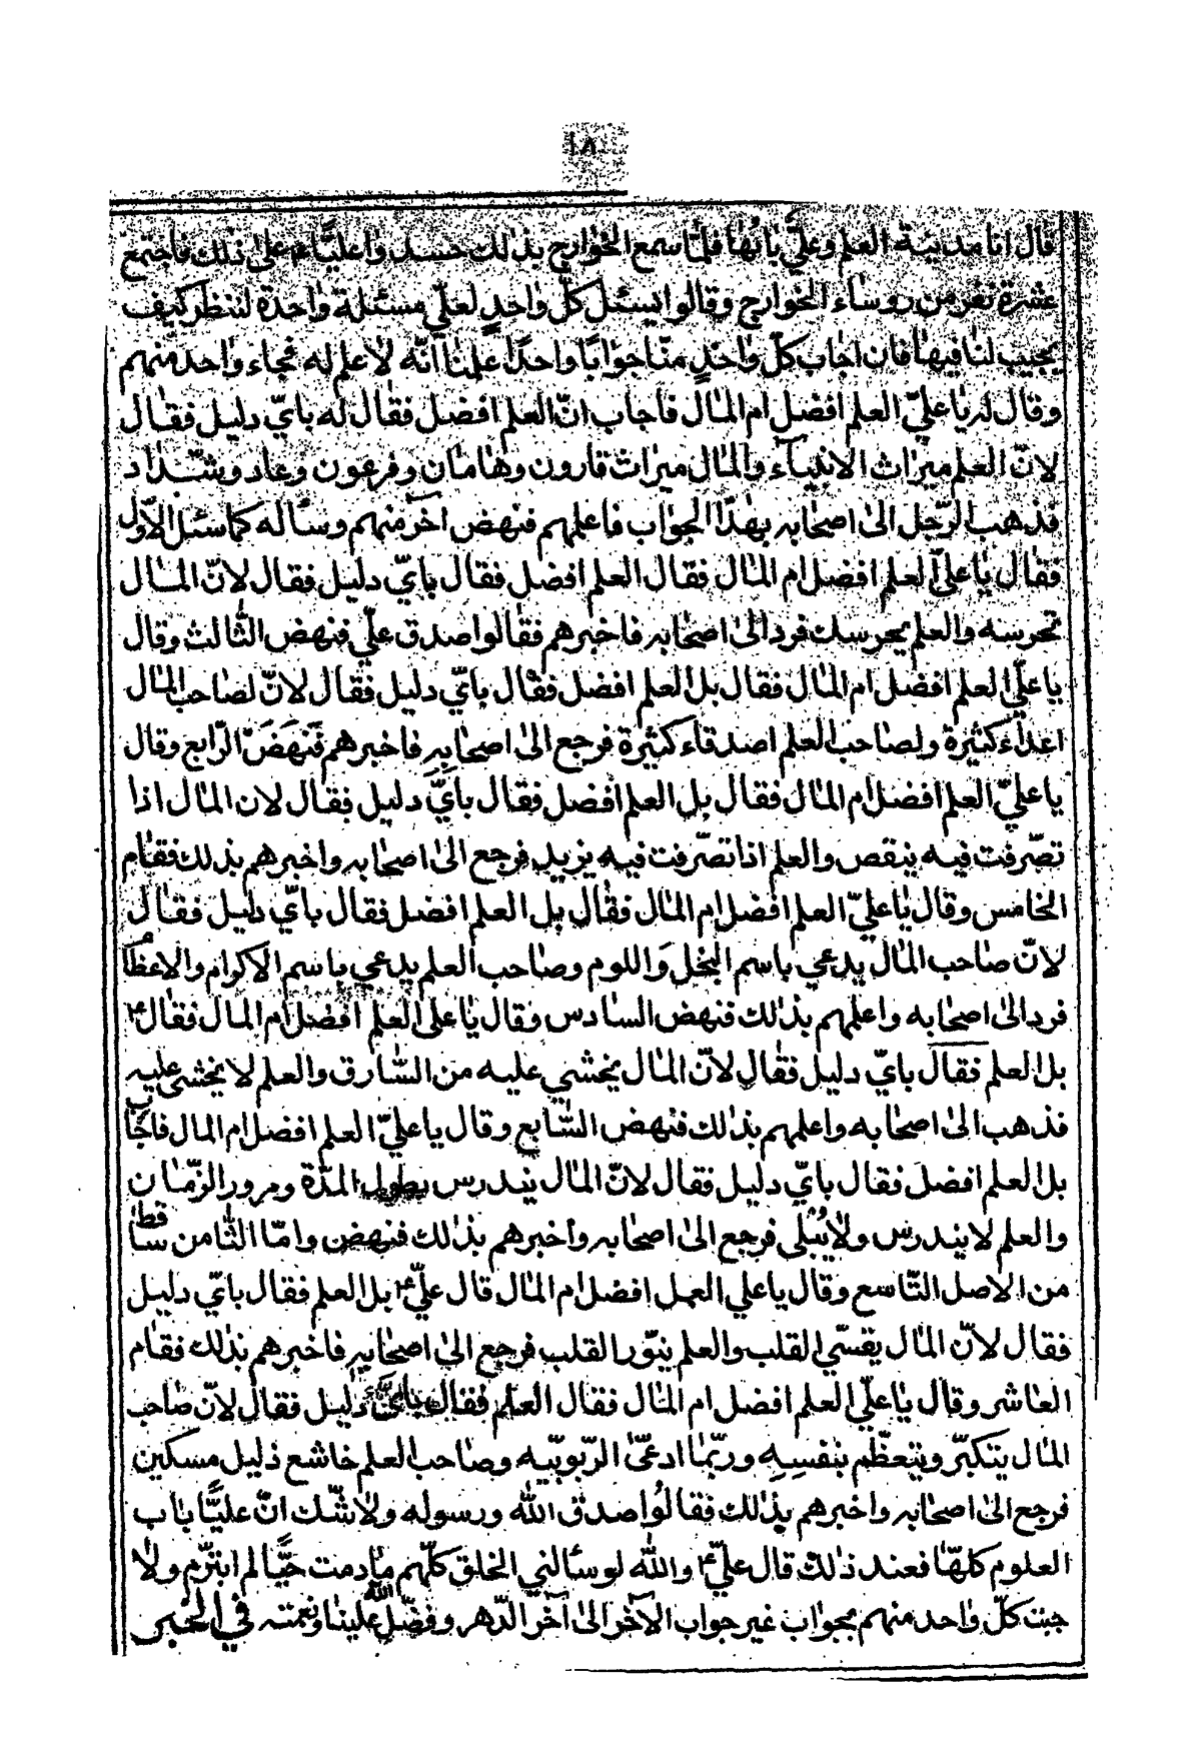 ١٨
قال انا مدينة العلم وعليّ بابُها فلمّا سمع الخوارج بذلك حسدوا عليًّا ع على ذلك فاجتمع
عشرة نفر من روساء الخوارج وقالوا يسئل كلّ واحدٍ لعليّ مسئلة واحدة لننظر كيف
يجيب لنا فيها فان اجاب كلّ واحدٍ منّا جوابًا واحدًا علمنا انّه لا علم له فجاء واحد منهم
وقال له يا عليّ العلم افضل ام المال فاجاب انّ العلم افضل فقال له بايّ دليل فقال
لانّ العلم ميراث الانبيآء والمال ميراث قارون وهامان وفرعون وعاد وشدّاد
فذهب الرّجل الى اصحابه بهذا الجواب فاعلمهم فنهض آخر منهم وسأله كما سئل الاوّل
فقال يا عليّ العلم افضل ام المال فقال العلم افضل فقال بايّ دليل فقال لانّ المال
تحرسه والعلم يحرسك فرد الى اصحابه فاخبرهم فقالوا صدق عليّ فنهض الثالث وقال
يا عليّ العلم افضل ام المال فقال بل العلم افضل فقال بايّ دليل فقال لانّ لصاحب المال
اعداء كثيرة ولصاحب العلم اصدقاء كثيرة فرجع الى اصحابِهِ فاخبرهم فَنَهَضَ الرّابع وقال
يا عليّ العلم افضل ام المال فقال بل العلم افضل فقال بايّ دليل فقال لان المال اذا
تصّرفت فيه ينقص والعلم اذا تصّرفت فيه يزيد فرجع الى اصحابه واخبرهم بذلك فقام
الخامس وقال يا عليّ العلم افضل ام المال فقال بل العلم افضل فقال بايّ دليل فقال
لانّ صاحب المال يدعى باسم البخل وَاللوم وصاحب العلم يدعى باسم الاكرام والاعظام
فرد الى اصحابه واعلمهم بذلك فنهض السادس وقال يا على العلم افضل ام المال فقال ع
بل العلم فقال بايّ دليل فقال لانّ المال يخشى عليه من السّارق والعلم لا يخشى عليه
فذهب الى اصحابه واعلمهم بذلك فنهض السّابع وقال يا عليّ العلم افضل ام المال فاجاب
بل العلم افضل فقال بايّ دليل فقال لانّ المال يندرس بطول المدّة ومرور الزّمان
والعلم لا يندرس ولا يُبلى فرجع الى اصحابه وأخبرهم بذلك فنهض وامّا الثّامن ساقط
من الاصل التّاسع وقال يا على العمل افضل ام المال قال عليّ ع بل العلم فقال بايّ دليل
فقال لانّ المال يقسّي القلب والعلم ينوّر القلب فرجع الى اصحابه فاخبرهم بذلك فقام
العاشر وقال يا عليّ العلم افضل ام المال فقال العلم فقال بايّ دليل فقال لانّ صاحب
المال يتكبّر ويتعظّم بنفسِهِ وربّما ادعىّ الرّبوبيّه وصاحب العلم خاشع ذليل مسكين
فرجع الى اصحابه واخبرهم بذلك فقالُوا صدق الله ورسوله ولا شّك انّ عليًّا باب
العلوم كلّها فعند ذلك قال عليّ ع والله لو سألني الخلق كلّهم ما دمت حيًّا لم ابترّم ولا
جبت كلّ واحد منهم بجواب غير جواب الآخر الى آخر الدّهر وفضّل الله علينا ونعمته في الخبر